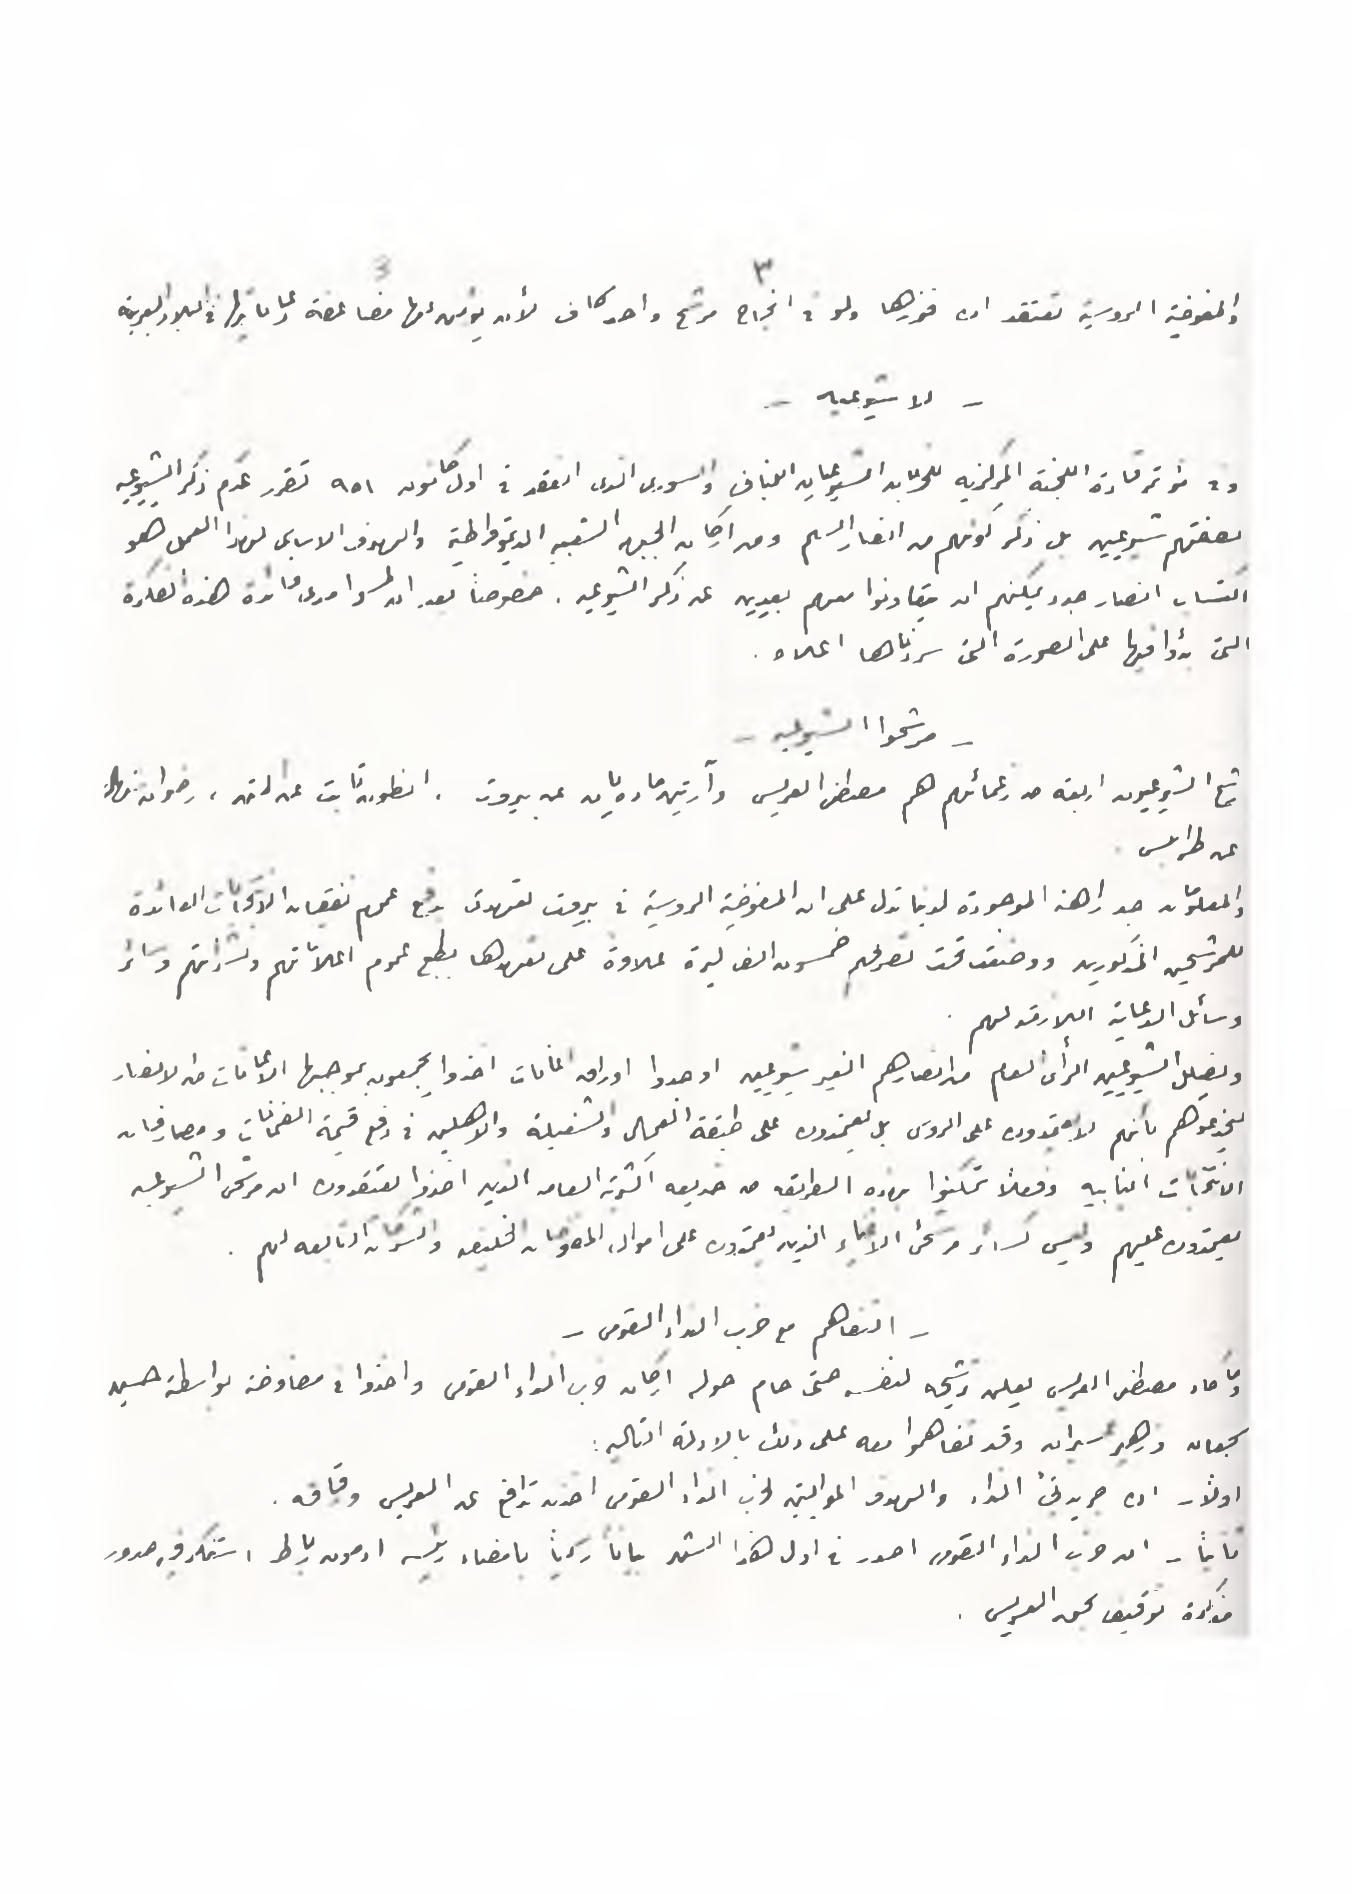 ٣
والمفوضية الروسية تعتقد ان فوزها ولو في انجاح مرشح واحد كاف لأن يؤمن لها مضاعفة دعايتها في البلاد العربية
- لا شيوعيه -
وفي مؤتمر قادة اللجنة المركزيه للحزبان الشيوعيان اللبناني والسوري الذي انعقد في اول كانون ٩٥١ تقرر عدم ذكر الشيوعيه
بصفتهم شيوعيين بل ذكر كونهم من انصار السلم ومن اركان الجبهه الشعبيه الديموقراطية والهدف الاساسي لهذا العمل هو
اكتساب انصار جدد يمكنهم ان يتعاونوا معهم بعيدين عن ذكر الشيوعيه . خصوصاً بعد ان لمسوا مدى فائدة هذه الفكرة
التي بدؤا فيها على الصورة التي سردناها اعلاه .
- مرشحوا الشيوعيه -
رشح الشيوعيون اربعه من زعمائهم هم مصطفى العريس وآرتين مادويان عن بيروت . انطون ثابت عن المتن ، رضوان
عن طرابلس .
والمعلومات جد راهنة الموجودة لدينا تدل على ان المفوضية الروسية في بيروت تعهدت بدفع عموم نفقات الانتخابات العائدة
للمرشحين المذكورين ووضعت تحت تصرفهم خمسون الف ليرة علاوة على تعهدها بطبع عموم اعلاناتهم ونشراتهم وسائر
وسائل الدعاية اللازمة لهم .
وليضلل الشيوعيين الرأى العام من انصارهم الغير شيوعيين اوجدوا اوراق اعانات اخذوا يجمعون بموجبها الاعانات من الانصار
ليخدعوهم بأنهم لا يعتمدون على الروس بل يعتمدون على طبقة العمال والشغيلة والاهلين في دفع قيمة الضمانات ومصارفات
الانتخابات النيابيه وفعلاً تمكنوا بهذه الطريقه من خديعه اكثرية العامه الذين اخذوا يعتقدون ان مرشحى الشيوعيه
يعتمدون عليهم وليس كسائر مرشحى الاغنياء الذين يعتمدون على اموال المفوضات الخليفه والشركات التابعه لهم .
- التفاهم مع حزب النداء القومى -
وما كاد مصطفى العريس يعلن ترشيحه لنفسه حتى حام حوله اركان حزب النداء القومى واخذوا في مفاوضة بواسطة حسين
سجعان وزهير عسيران وقد تفاهموا معه على ذلك بالادلة التاليه :
اولاً - ان جريدتى النداء والهدف المواليتين لحزب النداء القومى اخذت تدافع عن العريس ورفاقه .
ثانياً - ان حزب النداء القومى اصدر في اول هذا الشهر بياناً رسمياً بامضاء رئيسه ادمون رباط استنكر فيه صدور
مذكرة توقيف بحق العريس .